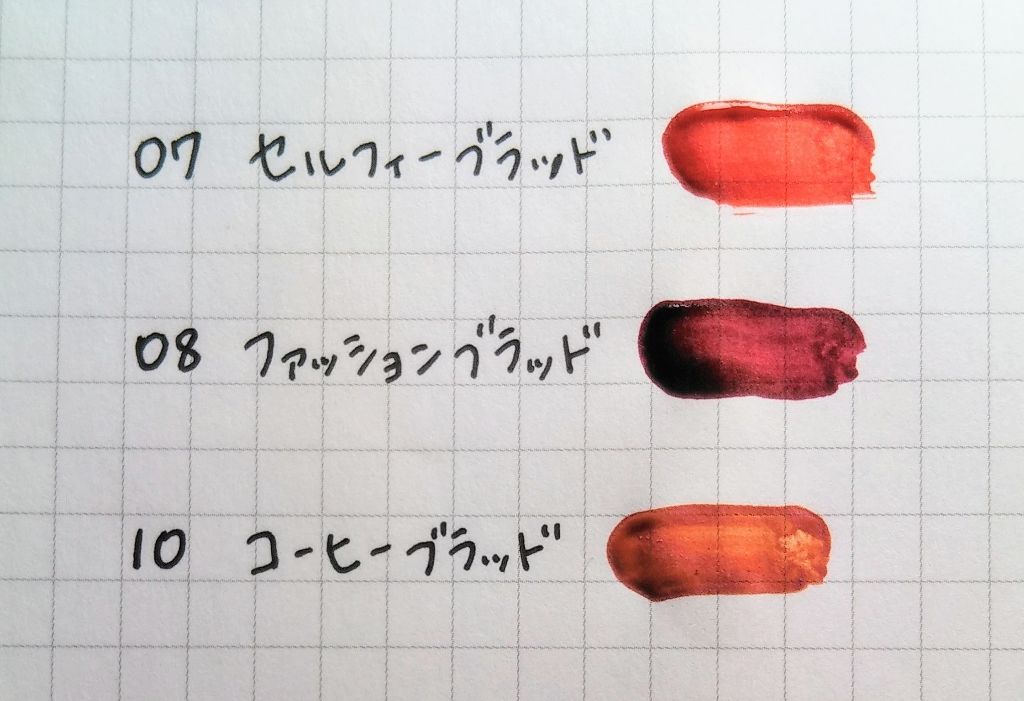 07 セルフィーブラッド
08 ファッションブラッド
10 コーヒーブラッド